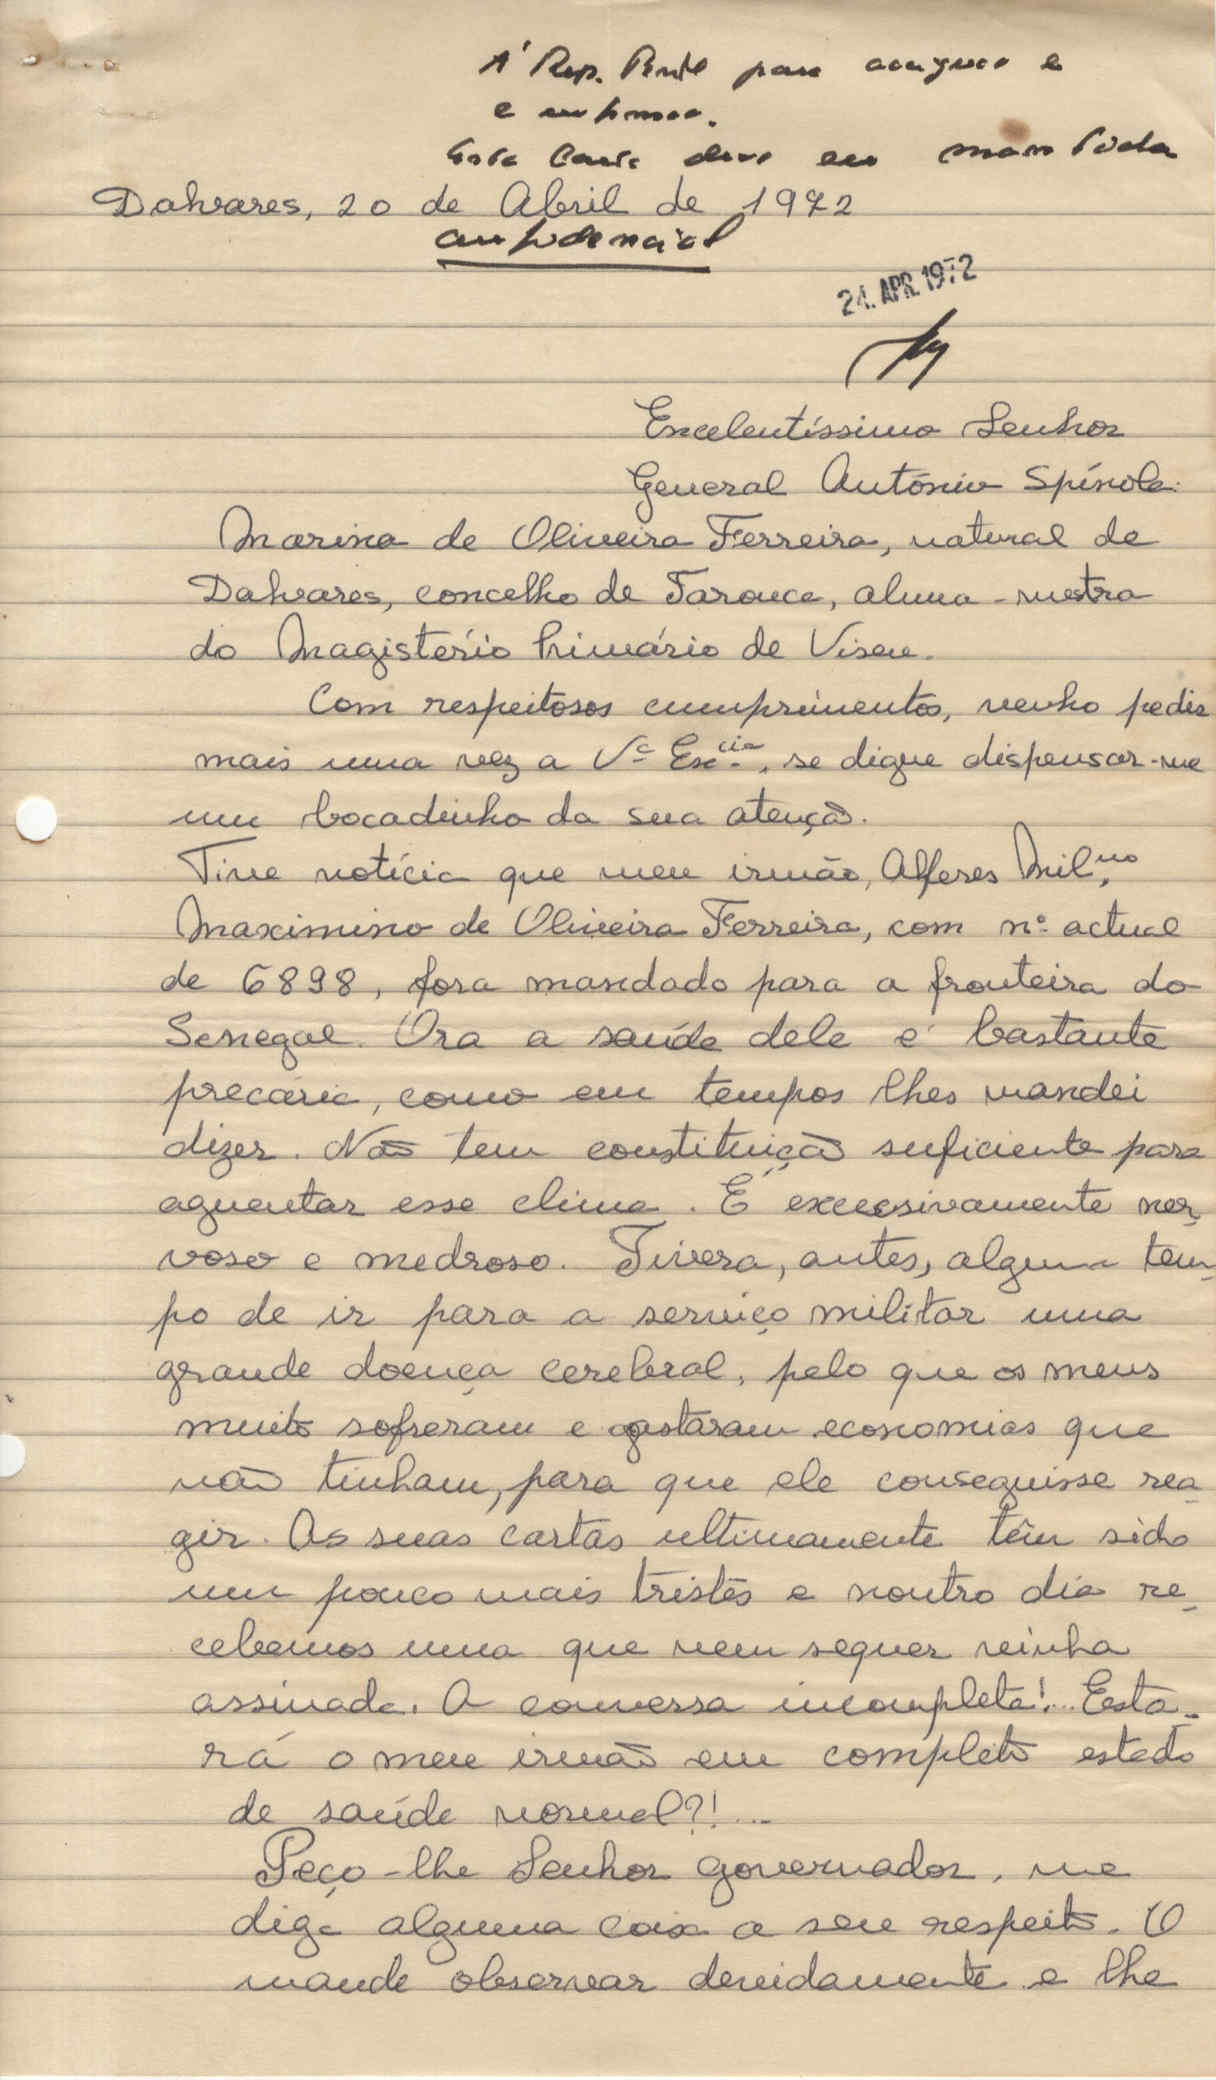 À Rep. para e
e
esta carta deve ser mantida
Dalvares, 20 de Abril de 1972
confidencial
24. APR. 1972
Excelentíssimo Senhor
General António Spínola:
Marina de Oliveira Ferreira, natural de
Dalvares, concelho de Tarouca, aluna-mestra
do Magistério Primário de Viseu.
Com respeitosos cumprimentos, venho pedir
mais uma vez a Vª Exᶜⁱᵃ, se digne dispensar-me
um bocadinho da sua atenção.
Tive notícia que meu irmão, Alferes Milⁿᵒ,
Maximino de Oliveira Ferreira, com nº actual
de 6898, fora mandado para a fronteira do
Senegal. Ora a saúde dele é bastante
precária, como em tempos lhes mandei
dizer. Não tem constituição suficiente para
aguentar esse clima. É excessivamente ner-
voso e medroso. Tivera, antes, algum tem-
po de ir para o serviço militar uma
grande doença cerebral, pelo que os meus
muito sofreram e gastaram economias que
não tinham, para que ele conseguisse rea-
gir. As suas cartas ultimamente têm sido
um pouco mais tristes e noutro dia re-
cebemos uma que nem sequer vinha
assinada. A conversa incompleta!... Esta-
rá o meu irmão em completo estado
de saúde normal?!...
Peço-lhe Senhor governador, me
diga alguma coisa a seu respeito. O
mande observar devidamente e lhe